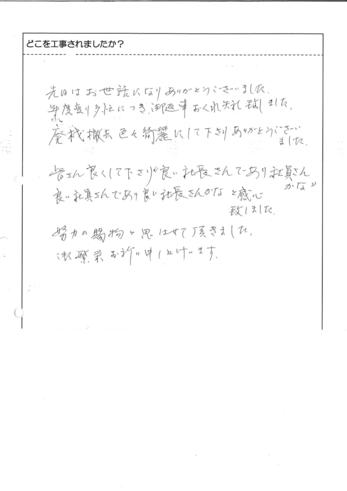 どこを工事されましたか？
先日はお世話になりありがとうございました。
年度変り多忙につき、御返事おくれ失礼致しました。
廃機撤去 色々綺麗にして下さりありがとうござい
ました。
皆さん良くして下さり"良い社長さんであり社員さん
かな"
良い社員さんであり良い社長さんかな と感心
致しました。
努力の賜物と思はせて頂きました。
御繁栄お祈り申し上げます。